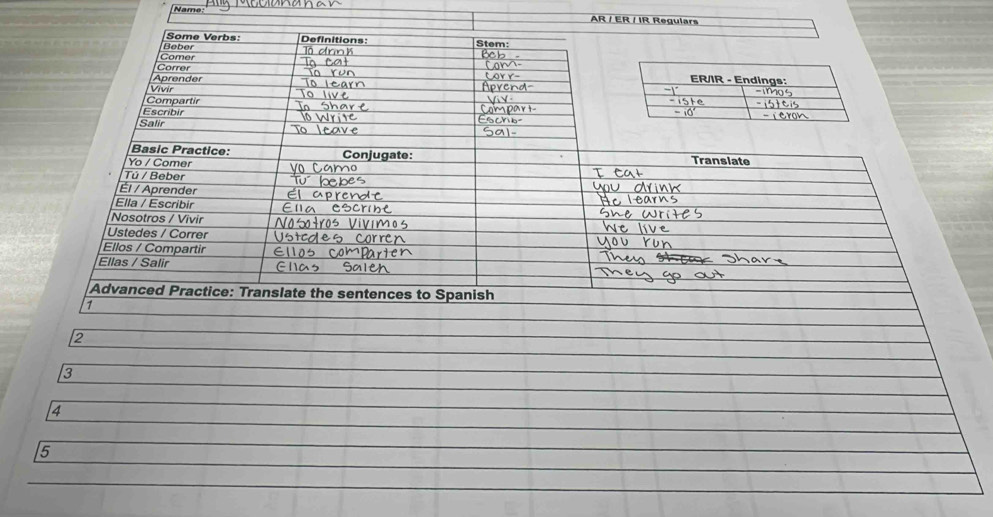 Name: Ally
AR / ER / IR Regulars
Some Verbs: Definitions: Stem:
Beber To drink Beb -
Comer To eat Com-
Correr To run Corr-
Aprender To learn Aprend-
Vivir To live Viv-
Compartir To share Compart-
Escribir To write Escrib-
Salir To leave Sal-
ER/IR - Endings:
-í -imos
-iste -isteis
-ió -ieron
Basic Practice: Conjugate: Translate
Yo / Comer Yo Como I eat
Tú / Beber Tú bebes you drink
Él / Aprender El aprende He learns
Ella / Escribir Ella escribe She writes
Nosotros / Vivir Nosotros Vivimos We live
Ustedes / Correr Ustedes corren you run
Ellos / Compartir Ellos comparten They share
Ellas / Salir Ellas Salen They go out
Advanced Practice: Translate the sentences to Spanish
1
2
3
4
5